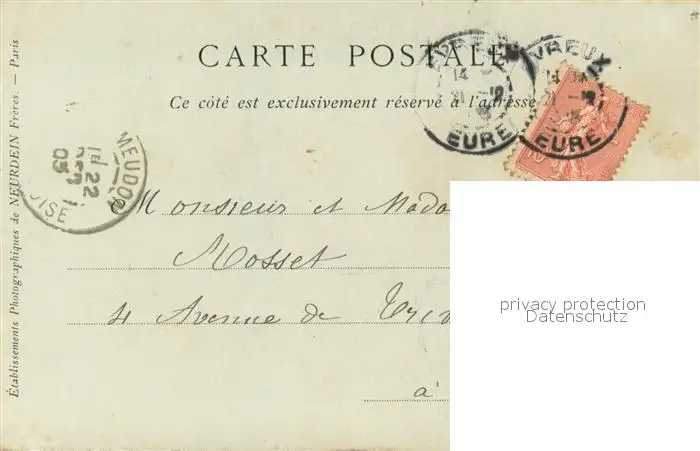 CARTE POSTALE
Ce côté est exclusivement réservé à l'adresse
EVREUX
14
21
EURE
EVREUX
14
21
EURE
10
MEUDON
22
03
OISE
Établissements Photographiques de NEURDEIN Frères. — Paris
Monsieur et Mada
Mosset
4 Avenue de
à
privacy protection
Datenschutz